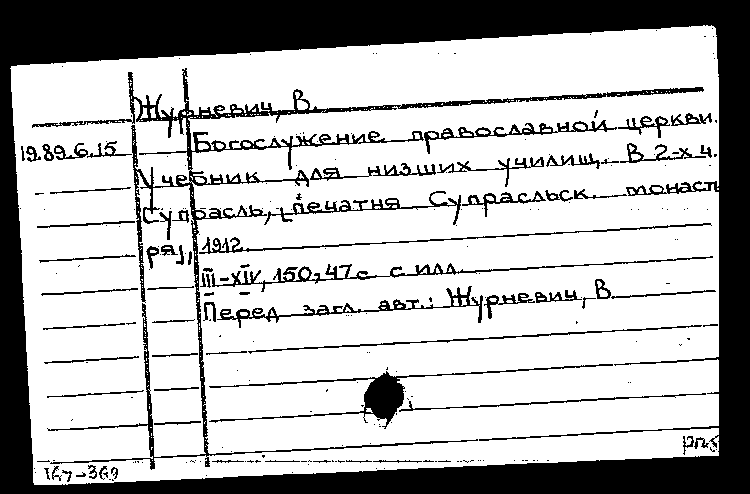 Журневич, В.
19.89.6.15 Богослужение православной церкви.
Учебник для низших училищ. В 2-х ч.
Супрасль, [печатня Супрасльск. монаст
ря], 1912.
III-XIV, 150, 47 с с илл.
Перед загл. авт.: Журневич, В.
167-369